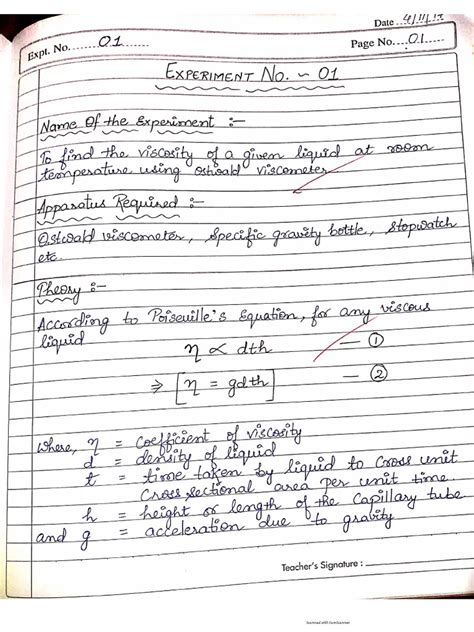 Date 4/11/17
Expt. No. 01
Page No. 01
EXPERIMENT No. ~ 01
Name Of the Experiment :-
To find the viscosity of a given liquid at room
temperature using ostwald viscometer
Apparatus Required :-
Ostwald viscometer, Specific gravity bottle, Stopwatch
etc.
Theory :-
According to Poiseuille's Equation, for any viscous
liquid
η ∝ dth — ①
⇒ [η = gdth] — ②
where, η = coefficient of viscosity
d = density of liquid
t = time taken by liquid to cross unit
cross, sectional area per unit time
h = height or length of the capillary tube
and g = acceleration due to gravity
Teacher's Signature :
Scanned with CamScanner